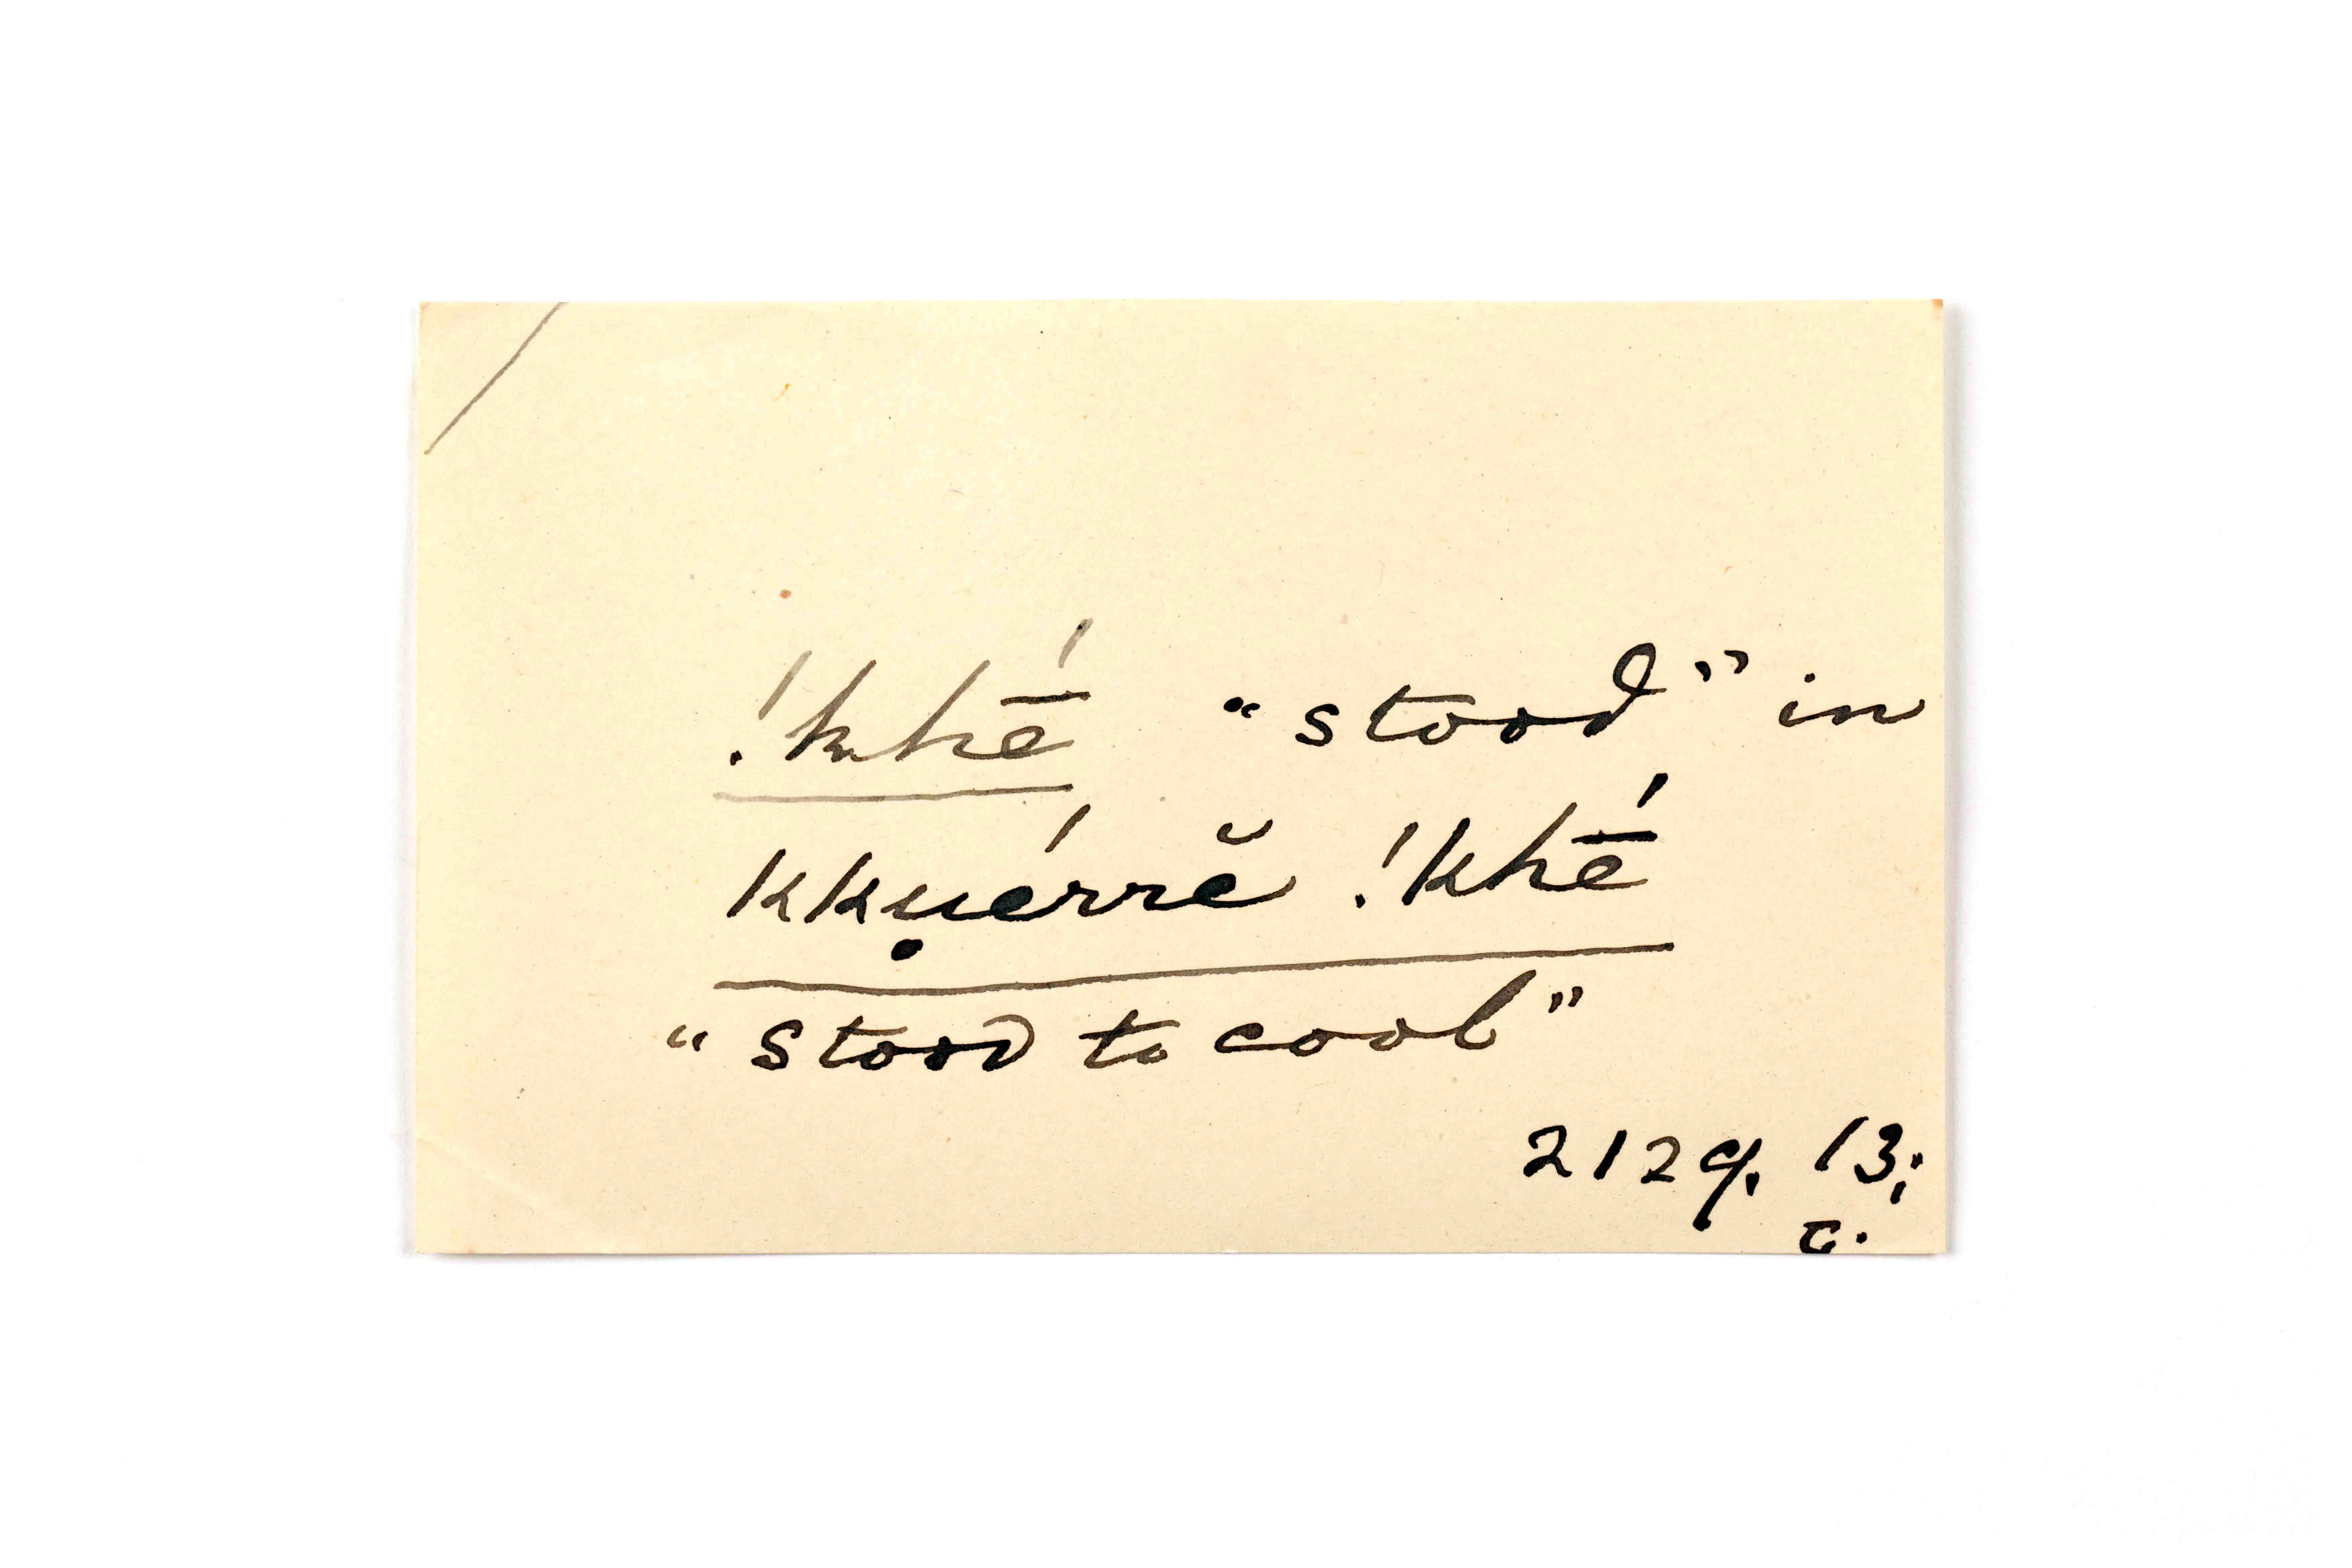 !khḗ “stood” in
kkụérrĕ !khḗ
“stood to cool”
2129. 13;
c.